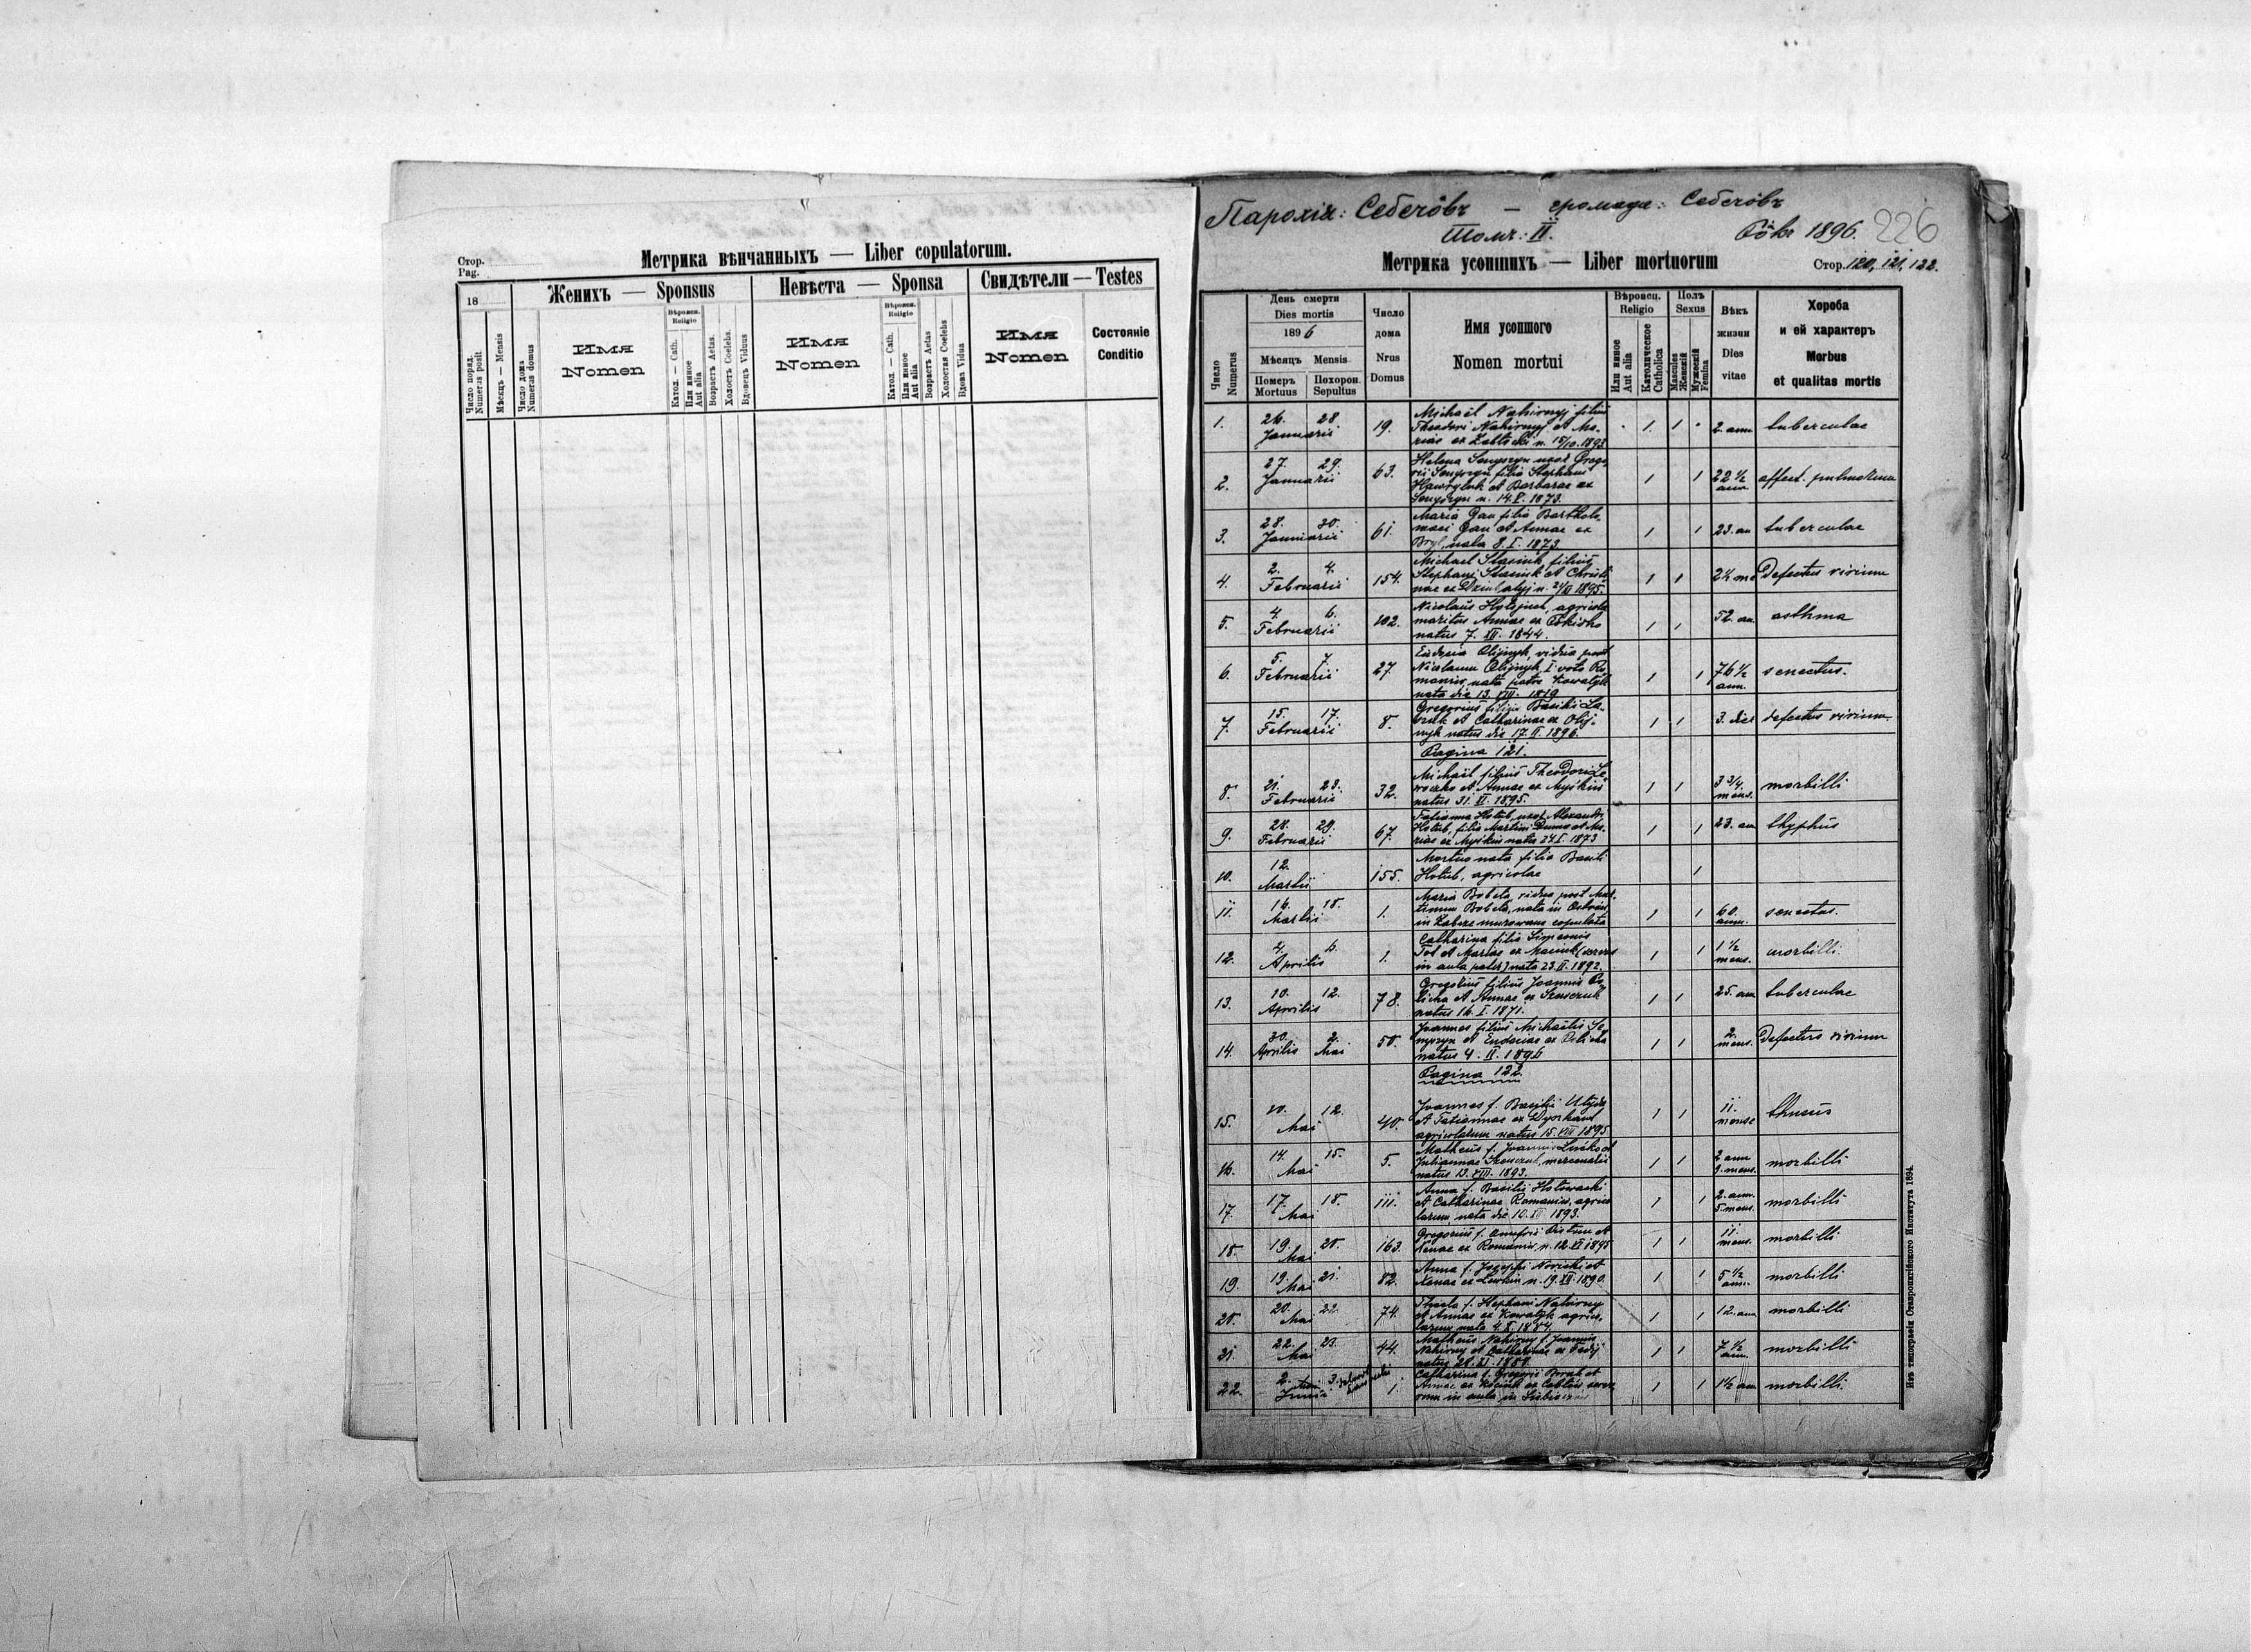 Стор.
Pag.
Метрика вѣнчанныхъ — Liber copulatorum.
18
Женихъ — Sponsus
Невѣста — Sponsa
Свидѣтели — Testes
Число поряд.
Numerus posit.
Мѣсяцъ — Mensis
Число дома
Numerus domus
Имя
Nomen
Вѣроисп.
Religio
Катол. — Cath.
Или иное
Aut alia
Возрастъ Aetas.
Холостъ Coelebs.
Вдовецъ Viduus
Имя
Nomen
Вѣроисп.
Religio
Катол. — Cath.
Или иное
Aut alia
Возрастъ Aetas
Холостая Coelebs
Вдова Vidua
Имя
Nomen
Состояніе
Conditio
Парохія: Себечôвъ — громада: Себечôвъ
Томъ: II.
Рôкъ 1896.
226
Метрика усопшихъ — Liber mortuorum
Стор. 120, 121, 122.
Число
Numerus
День смерти
Dies mortis
1896
Мѣсяцъ Mensis
Померъ Mortuus
Похорон. Sepultus
Число
дома
Nrus
Domus
Имя усопшого
Nomen mortui
Вѣроисп.
Religio
Или иное
Aut alia
Католическое
Catholica
Полъ
Sexus
Masculus
Женскій
Мужескій
Femina
Вѣкъ
жизни
Dies
vitae
Хороба
и ей характеръ
Morbus
et qualitas mortis
1. 26. 28. Januarii 19. Michaël Nahirnyj filius
Theodori Nahirnyj et Ma-
riae ex Zablocki n. 15/10. 1893 1 1 2. ann. tuberculae
2. 27. 29. Januarii 63. Helena Senyszyn uxor Grego-
rii Senyszyn filia Stephani
Hawryluk et Barbarae ex
Senyszyn n. 14. V. 1873. 1 1 22 1/2 ann. affect. pulmonum
3. 28. 30. Januarii 61. Maria Gau filia Bartholo-
maei Gau et Annae ex
Bryl, nata 8. I. 1873. 1 1 23. an tuberculae
4. 2. 4. Februarii 154. Michael Stasiuk filius
Stephani Stasiuk et Christi
nae ex 1895. 1 1 2 1/2 me Defectus virium
5. 4. 6. Februarii 102. Nicolaus agricola
maritus Annae ex
natus 7. XII. 1844. 1 1 52. an asthma
6. 5. 7. Februarii 27. Eudocia Olijnyk, vidua post
Nicolaum Olijnyk, I. voto Ro-
maniv, nata patre Kowalyk
nata die 13. VIII. 1819 1 1 76 1/2 ann. senectus.
7. 15. 17. Februarii 8. Gregorius filius Basilii
et Catharinae ex Olij-
nyk natus die 17. II. 1896. 1 1 3. dies defectus virium
Pagina 121.
8. 21. 23. Februarii 32. Michail filius Theodori Le-
et Annae ex Myśkiw
natus 31. 1895. 1 1 3 3/4. mens. morbilli
9. 28. 29. Februarii 67. Tatianna Hołub, uxor Alexandri
Hołub, filia Martini et Ma-
riae ex Myśkiw nata 24. I. 1873 1 1 23. an thyphus
10. 12. Martii 155. Mortuo nata filia Basili
Hołub, agricolae 1
11. 16. 18. Martii 1. Maria Bobela, vidua post Mar-
tinum Bobela, nata in
in murowane copulata 1 1 60. ann. senectus.
12. 4. 6. Aprilis 1. Catharina filia Simeonis
Tot et Mariae ex
in aula pater) nata 23. II. 1892. 1 1 1 1/2 mens. morbilli.
13. 10. 12. Aprilis 78. Gregorius filius Joannis
et Annae ex Szewczuk
natus 16. I. 1871. 1 1 25. ann tuberculae
14. 30. Aprilis 2. Mai 50. Joannes filius Michaëlis Se-
nyszyn et Eudociae ex
natus 4. II. 1896 1 1 2. mens. Defectus virium
Pagina 122.
15. 10. 12. Mai 40. Joannes f. Basilii
et Tatiannae ex
agricolarum natus 15. VIII 1895 1 1 11. mense
16. 14. 15. Mai 5. Matheus f. Joannis
Juliannae mercenarii
natus 13. VIII. 1893. 1 1 2 ann 9. mens. morbilli
17. 17. 18. Mai 111. Anna f. Basilii Hołowacki
et Catharinae Romaniw, agrico
larum, nata die 10. 1893. 1 1 2. ann. 5 mens. morbilli
18. 19. 20. Mai 163. Gregorius f. Onufrii et
Xenae ex Romaniw, n. 12. VI 1895 1 1 11. mens. morbilli
19. 19. 21. Mai 82. Anna f. Josephi Nowicki et
Xenae ex n. 19. XII. 1890. 1 1 5 1/2 ann. morbilli
20. 20. 22. Mai 74. Thecla f. Stephani Nahirny
et Annae ex Kowalyk agrico-
larum nata 4. X. 1884 1 1 12. ann morbilli
21. 22. 23. Mai 44. Matheus Nahirny f. Joannis
Nahirny et Catharinae ex Fedij
natus 28. XI. 1888. 1 1 7 1/2 ann. morbilli
22. 2. 3. Junii 1. Catharina f. Gregorii et
Annae ex ex
rum in aula in 1 1 1 1/2 ann morbilli.
Изъ типографіи Ставропигійского Института 1894.